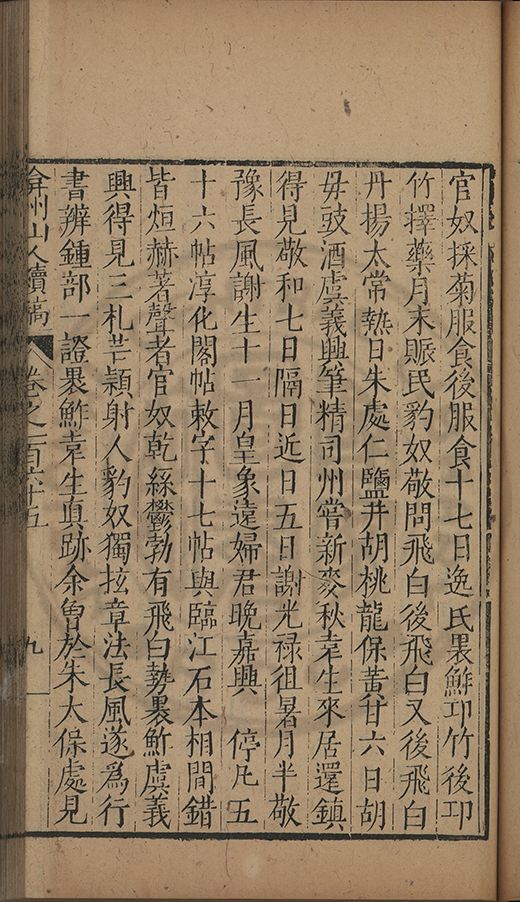 官奴採菊服食後服食十七日逸氏裹鮓邛竹後邛
竹擇藥月末賑民豹奴敬問飛白後飛白又後飛白
丹揚太常熱日朱處仁鹽井胡桃龍保黃甘六日胡
毋豉酒虞義興筆精司州嘗新麥秋羊生來居還鎮
得見敬和七日隔日近日五日謝光祿徂暑月半敬
豫長風謝生十一月皇象遠婦君晚嘉興 停凡五
十六帖淳化閣帖敕字十七帖與臨江石本相間錯
皆烜赫著聲者官奴乾絲鬱勃有飛白勢裹鮓虞義
興得見三札芒穎射人豹奴獨扙章法長風遂為行
書辨鍾部一證裹鮓羊生真跡余曾於朱太保處見
弇州山人續稿 卷之一百六十五 九